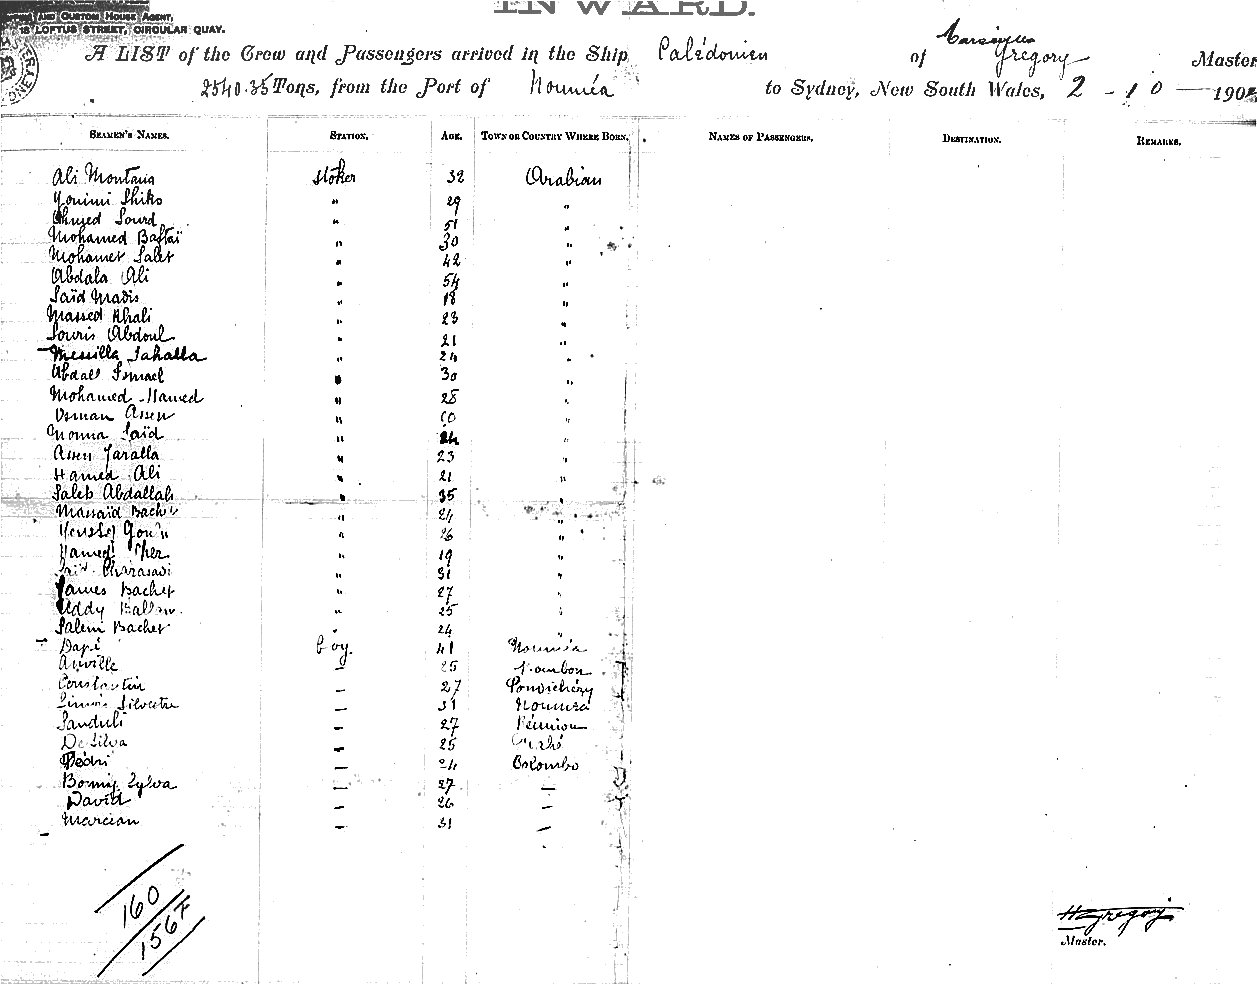 AND CUSTOM HOUSE AGENT,
18 LOFTUS STREET, CIRCULAR QUAY.
INWARD.
A LIST of the Crew and Passengers arrived in the Ship Calédonien of Gregory Master
2540.35 Tons, from the Port of Nouméa to Sydney, New South Wales, 2 - 10 - 1902
SEAMEN'S NAMES. STATION. AGE. TOWN OR COUNTRY WHERE BORN. NAMES OF PASSENGERS. DESTINATION. REMARKS.
Ali Montana Stoker 32 Arabian
Younmi Shiko " 29 "
Ahmed Sourd " 51 "
Mohamed Baftaï " 30 "
Mohamet Saler " 42 "
Abdala Ali " 54 "
Saïd Madis " 18 "
Massed Khali " 23 "
Souris Abdoul " 21 "
Messilla Sahalla " 24 "
Abdall Ismael " 30 "
Mohamed Hamed " 28 "
Osman Assen " "
Mouna Saïd " 24 "
Assen Jaralla " 23 "
Hamed Ali " 21 "
Saleh Abdallah " 35 "
Massaïd Bachir " 24 "
Youssef " 26 "
Hamed " 19 "
Saïd " 31 "
James Bacher " 27 "
Uddy " 25 "
Salem Bacher " 24 "
Dapé Boy. 41 Nouméa
Auville — 25 Bourbon
Constantin — 27 Pondichéry
Silvestre — 31 Nouméa
Sanduli — 27 Réunion
De Silva — 25
Pédri — 24 Colombo
Zylva — 27 —
David — 26 —
Marcian — 31 —
160
156
H Gregory
Master.